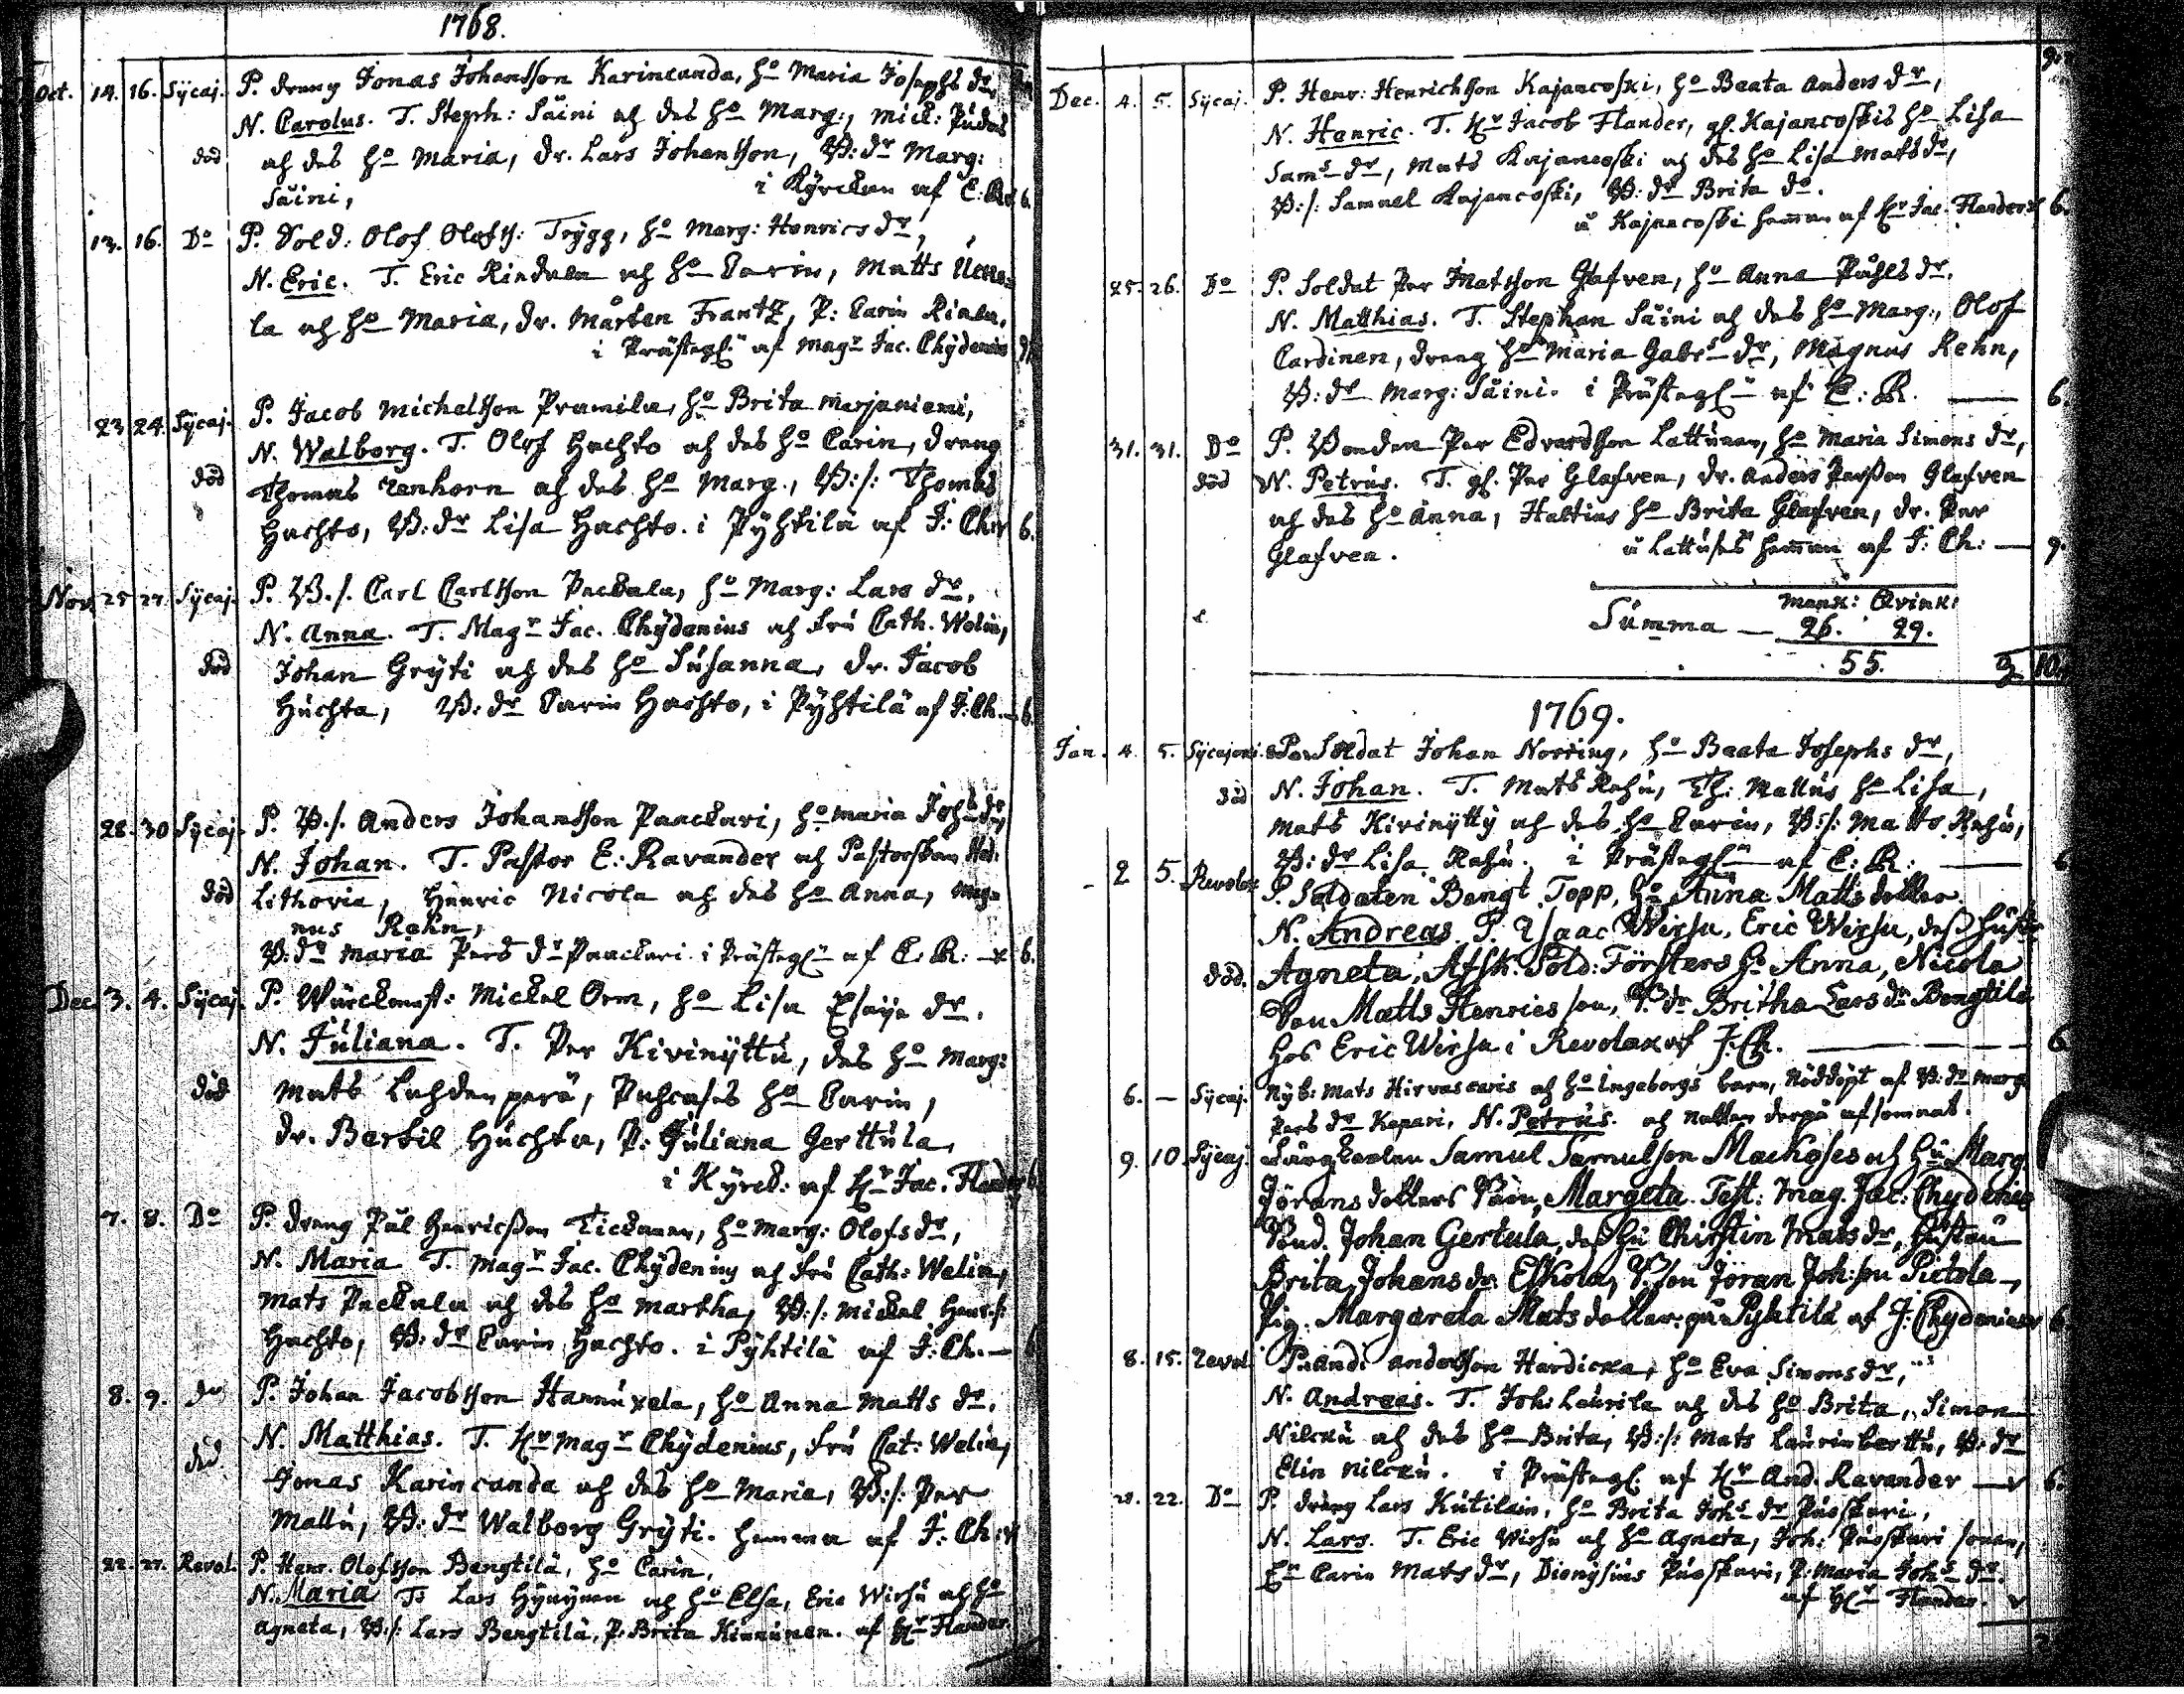 1768.
Oct. 14. 16. Sÿcaj. P. dreng Jonas Johansson Karincanda, ho Maria Josephs dr,
N. Carolus. T. Steph: Säini och des ho Marg:, Mick: Pudas
död och des ho Maria, dr. Lars Johansson, B: dr Marg:
Säini, i Kÿrckan af E: R. 6.
13. 16. Do P. Sold: Olof Olofss: Trÿgg, ho Marg: Henrics dr,
N. Eric. T. Eric och ho Carin, Matts
la och ho Maria, dr. Mårten Frantz, P: Carin
i Prästegln af Magr Jac. Chÿdenius
23. 24. Sÿcaj. P. Jacob Michelsson Pramila, ho Brita Marjaniemi,
N. Walborg. T. Olof Huchto och des ho Carin, dreng
död Thomas renhorn och des ho Marg., B: s: Thomas
Huchto, B: dr Lisa Huchto. i Pÿhtilä af J: Ch: 6.
Nov. 25 27. Sÿcaj. P. B. s. Carl Carlsson Packala, ho Marg: Lars dr,
N. Anna. T. Magr Jac. Chÿdenius och fru Cath. Welin,
död Johan Grÿti och des ho Susanna, dr. Jacob
Huchta, B: dr Carin Huchto, i Pÿhtilä af J: Ch. 6.
28. 30 Sÿcaj. P. B. s. Anders Johansson Paackari, ho Maria Johs dr,
N. Johan. T. Pastor E: Ravander och Pastorskan Hel:
död Lithovia, Henric Nicola och des ho Anna, Mag-
nus Rehn,
B: dr Maria Pers dr Paackari. i Prästegln af E. R: 6.
Dec. 3. 4. Sÿcaj. P. Mickel Orm, ho Lisa dr.
N. Juliana. T. Per Kivinÿttu, des ho Marg:
död Mats Lahdenperä, ho Carin,
dr. Bertil Huchta, P: Juliana Gerttula,
i Kÿrck: af Hr Jac. Flander 6
7. 8. Do P. dreng Pål Henricsson Tickanen, ho Marg: Olofs dr,
N. Maria T. Magr Jac. Chÿdenius och fru Cath: Welin,
Mats Packala och des ho Martha, B: s: Mickel Henr: s:
Huchto, B: dr Carin Huchto. i Pÿhtilä af J: Ch.
8. 9. do P. Johan Jacobsson Hannuxela, ho Anna Matts dr.
N. Matthias. T. Hr Magr Chÿdenius, fru Cat: Welin,
död Jonas Karincanda och des ho Maria, B: s: Per
Mallu, B: dr Walborg Grÿti. hemma af J. Ch:
22. 27. Revol. P. Henr. Olofsson Bengtilä, ho Carin,
N. Maria T: Lars Hÿnÿnen och ho Elsa, Eric Wirsu och ho
Agneta, B: s: Lars Bengtilä, P: Brita Kinnunen. af Hr Flander.
9.
Dec. 4. 5. Sÿcaj. P. Henr: Henrichsson Kajancoski, ho Beata Anders dr,
N. Henric. T. Hr Jacob Flander, gl. Kajancoskis ho Lisa
Sams dr, Mats Kajancoski och des ho Lisa Mats dr,
B: s: Samuel Kajancoski, B: dr Brita do.
å Kajancoski heman af Hr Jac: Flander 6.
25. 26. Do P. Soldat Per Matsson Glafven, ho Anna Påhls dr.
N. Matthias. T. Stephan Säini och des ho Marg:, Olof
Cardinen, dreng ho Maria Gabrs dr, Magnus Rehn,
B: dr Marg: Säini. i Prästegln af E: R. 6.
31. 31. Do P. Bonden Per Edvardsson Lattunen, ho Maria Simons dr,
död N. Petrus. T. gl. Per Glafven, dr. Anders Persson Glafven
och des ho Anna, Haltius ho Brita Glafven, dr. Per
Glafven. å Lattuses heman af J: Ch: 9.
Mank: Qvink:
Summa 26. 29.
55. 10
1769.
Jan. 4. 5. Sÿcajoki. P. Soldat Johan Norring, ho Beata Josephs dr,
död N. Johan. T. Mats Rahu, Th: Mallus ho Lisa,
Mats Kivinÿttÿ och des ho Carin, B: s: Matts Rahu,
B: dr Lisa Rahu. i Prästegln af E: R: 6
2 5. Revolax P. Soldaten Bengt Topp, ho Anna Matts dotter.
N. Andreas. T. Isaac Wirsu, Eric Wirsu, dess hustr
död. Agneta, Afsk: Sold: Försters ho Anna, Nicola
Matts Henricsson, B. dr Britha Lars dr Bengtilä
hos Eric Wirsu i Revolax af J: Ch. 6
6. — Sÿcaj. Nÿb: Mats Hirvascaris och ho Ingeborgs barn, Nöddöpt af B: dr Marg:
Pers dr Kapari, N. Petrus. och natten derpå afsomnat.
9. 10 Sÿcaj. Samul Samulson Mackoses och hu Marg.
Jörans dotters barn, Margeta. Test: Mag. Jac: Chydenius
Bond. Johan Gertula, des hu Chirstin Mats dr, hustru
Brita Johans dr Eskola, B. son Jöran Joh: son Pietola,
Pig. Margareta Mats dotter: på Pyhtilä af J: Chydenius 6
8. 15. Revol. P: And: Andersson Hardicka, ho Eva Simons dr,
N. Andreas. T. Joh: Laurila och des ho Brita, Simon
Nilcku och des ho Brita, B: s: Mats Laurinberttu, B: dr
Elin Nilcku. i Prästegl. af Hr And. Ravander 6.
22. Do P. dreng Lars Kutilain, ho Brita Johs dr Puoskari,
N. Lars. T. Eric Wirsu och ho Agneta, Joh: Puoskari sonen,
Carin Mats dr, Dionysius Puoskari, P: Maria Johs dr.
af Hr Flander.